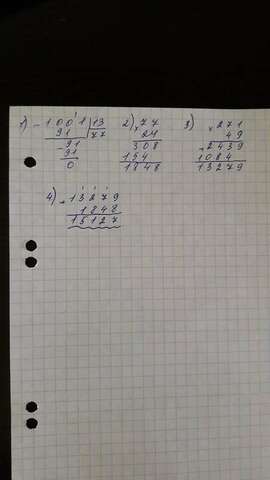 1) - 1001 | 13
91 | 77
- 91
91
0
2) × 77
24
308
154
1848
3) × 271
49
+ 2439
1084
13279
4) + 13279
1848
15127